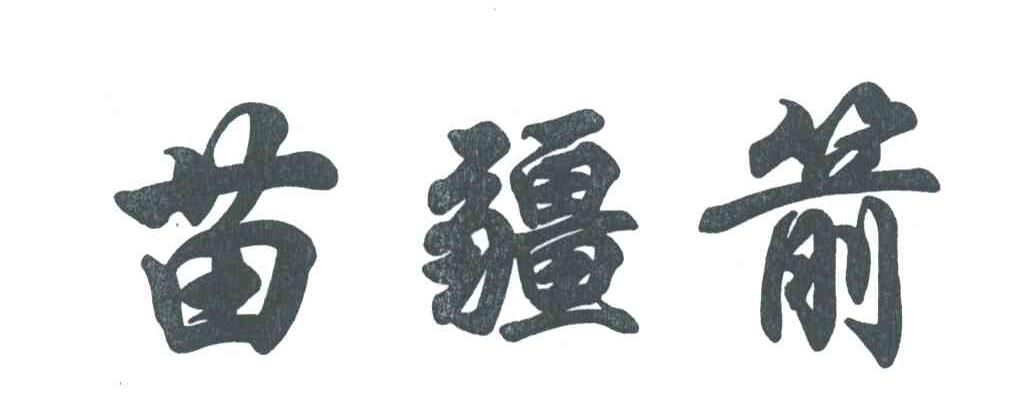 苗疆箭